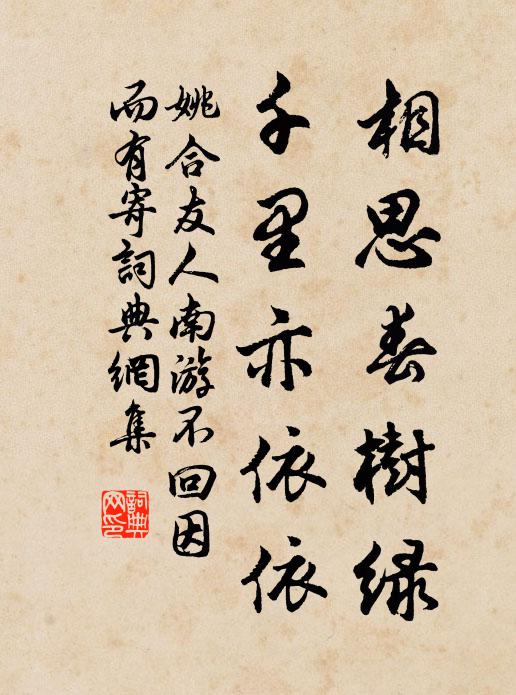 相思春樹緑
千里亦依依
姚合友人南游不回因
而有寄詞典網集
詞典网印